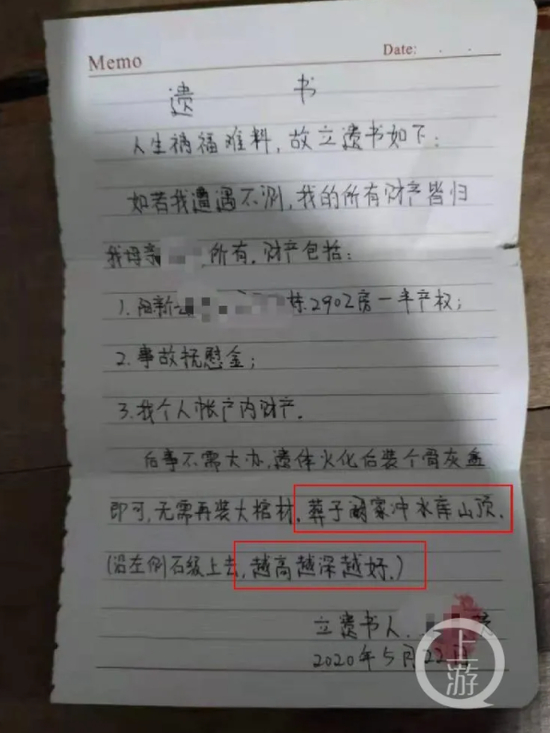 Memo
Date: . .
遗 书
人生祸福难料,故立遗书如下:
如若我遭遇不测,我的所有财产皆归
我母亲 所有,财产包括:
1.阳新 栋2902房一半产权;
2.事故抚慰金;
3.我个人帐户内财产.
后事不需大办,遗体火化后装个骨灰盒
即可,无需再装大棺材.葬于阚家冲水库山顶.
(沿左侧石级上去,越高越深越好.)
立遗书人.
2020年5月22日
上游